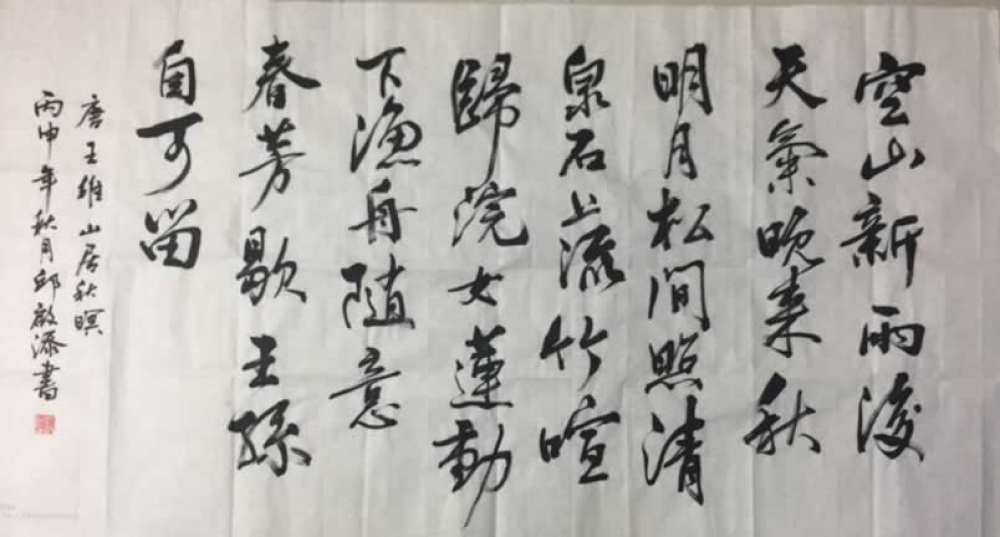 空山新雨後
天氣晚来秋
明月松間照清
泉石上流竹喧
歸浣女蓮動
下漁舟隨意
春芳歇王孫
自可留
唐王維山居秋暝
丙申年秋月邱啟添書